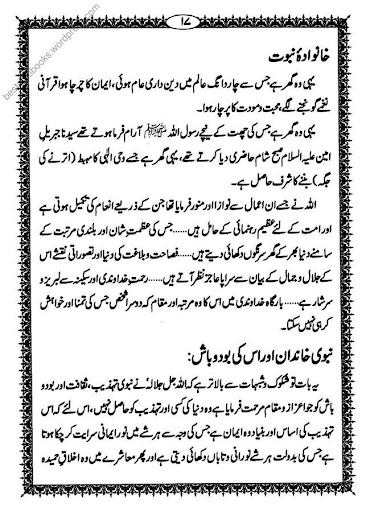 ۱۷
خانوادۂ نبوت
یہی وہ گھر ہے جس سے چاردانگ عالم میں دین داری عام ہوئی، ایمان کا چرچا ہوا قرآنی
نغمے گونجنے لگے، محبت ومودت کا پرچار ہوا۔
یہی وہ گھر ہے جس کی چھت کے نیچے رسول اللہ ﷺ آرام فرما ہوتے تھے سیدنا جبریل
امین علیہ السلام صبح شام حاضری دیا کرتے تھے، یہی گھر ہے جسے وحی الٰہی کا مہبط (اترنے کی
جگہ) بننے کا شرف حاصل ہے۔
اللہ نے جسے ان اعمال سے نوازا اور منور فرمایا تھا جن کے ذریعے انعام کی تکمیل ہوتی ہے
اور امت کے لئے عظیم رہنمائی کے حامل ہیں...... جس کی عظمت شان اور بلندی مرتبت کے
سامنے دنیا بھر کے گھر سرنگوں دکھائی دیتے ہیں...... فصاحت وبلاغت کی دنیا اور تصوراتی نقشے اس
کے جلال و جمال کے بیان سے سراپا عاجز نظر آتے ہیں...... رحمت خداوندی اور سکینہ سے لبریز و
سرشار ہے...... بارگاہ خداوندی میں اس کا وہ مرتبہ اور مقام کہ دوسرا شخص جس کی تمنا اور خواہش
کر ہی نہیں سکتا۔
نبوی خاندان اور اس کی بود و باش:
یہ بات تو شکوک وشبہات سے بالاتر ہے کہ اللہ جل جلالہ نے نبوی تہذیب، ثقافت اور بود و
باش کو جو اعزاز و مقام مرحمت فرمایا ہے وہ دنیا کی کسی اور تہذیب کو حاصل نہیں، اس لئے کہ اس
تہذیب کی اساس اور بنیاد وہ ایمان ہے جس کی وجہ سے ہر شے میں نور ایمانی سرایت کر چکا ہوتا
ہے جس کی بدولت ہر شے نورانی و تاباں دکھائی دیتی ہے اور پھر معاشرے میں وہ اخلاق حمیدہ